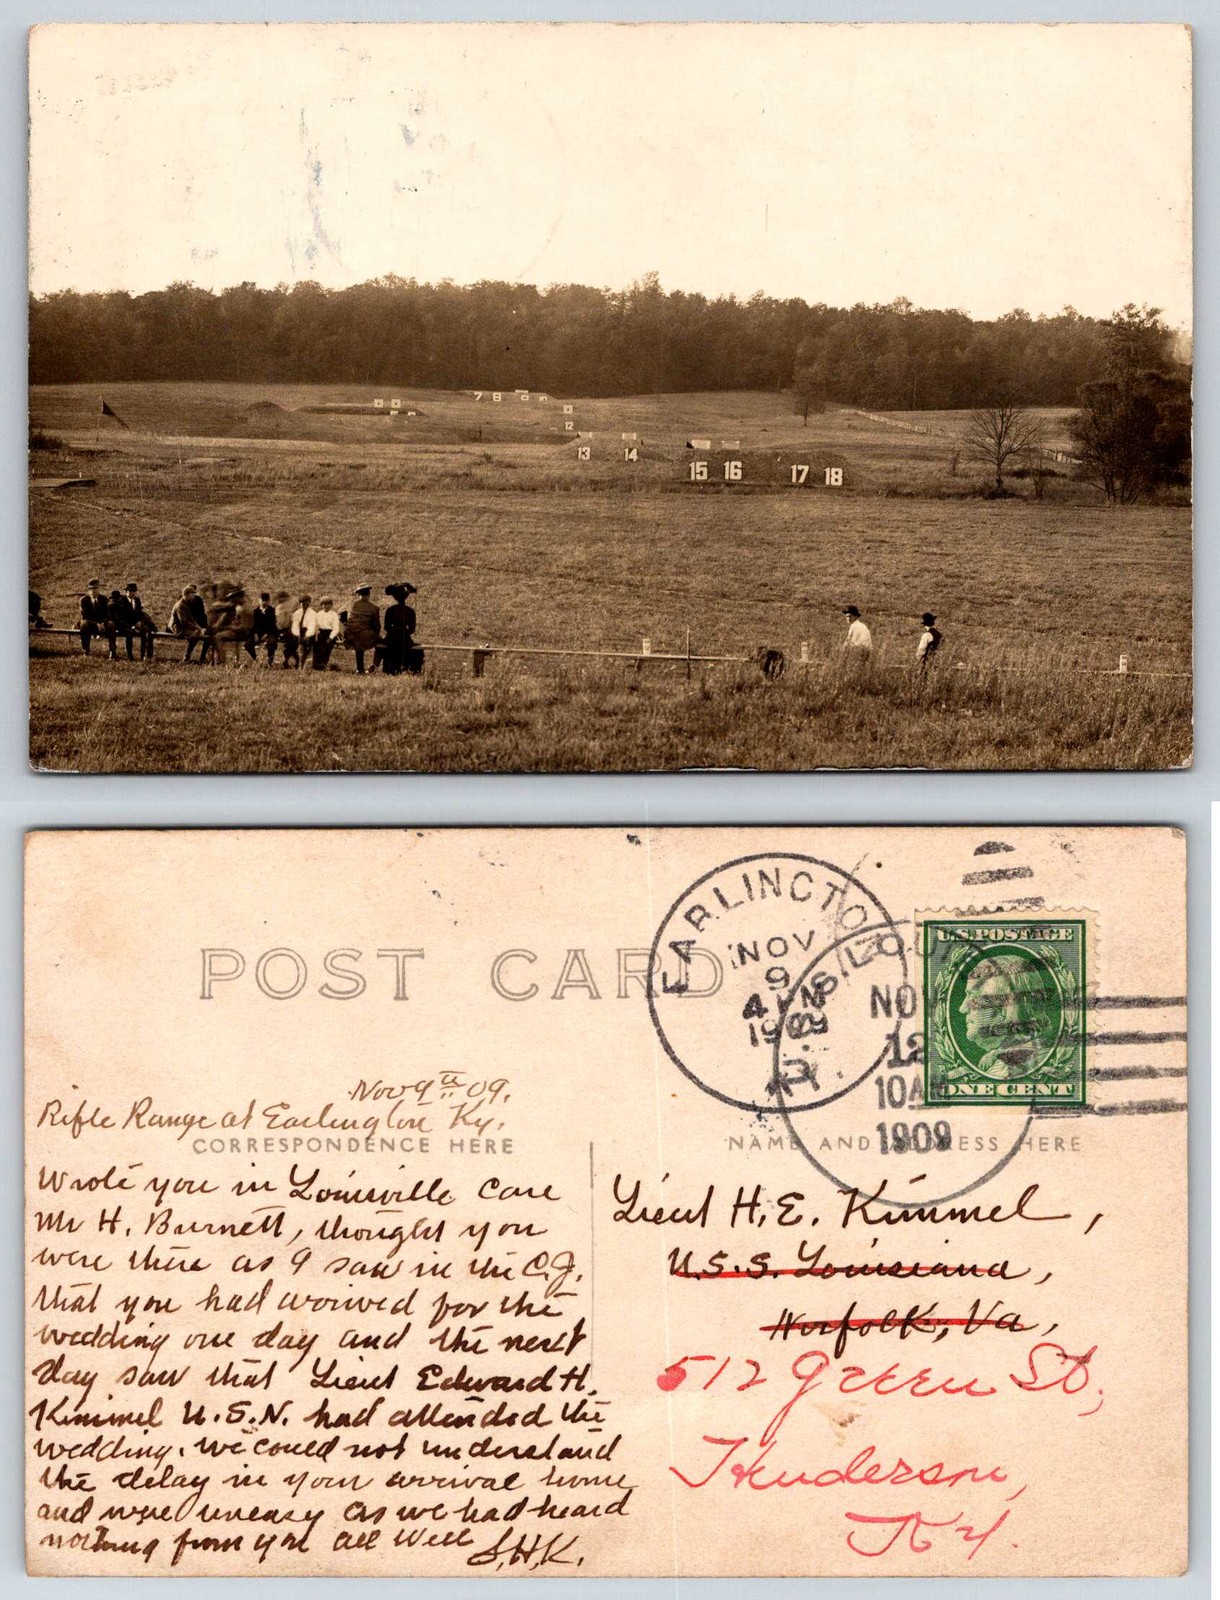 7 8 9 10
12
13 14
15 16 17 18
POST CARD
EARLINGTON
NOV
9
4 PM
1909
KY.
LOUISVILLE
NOV
12
10 AM
1909
U.S. POSTAGE
ONE CENT
Nov 9th 09.
Rifle Range at Earlington Ky.
CORRESPONDENCE HERE
NAME AND ADDRESS HERE
Wrote you in Louisville Care
Mr H. Burnett, thought you
were there as I saw in the C.J.
that you had arrived for the
wedding one day and the next
day saw that Lieut Edward H.
Kimmel U.S.N. had attended the
wedding. we could not understand
the delay in your arrival home
and were uneasy as we had heard
nothing from you all well
S.H.K.
Lieut H. E. Kimmel,
U.S.S. Louisiana,
Norfolk, Va,
512 Green St,
Henderson,
Ky.